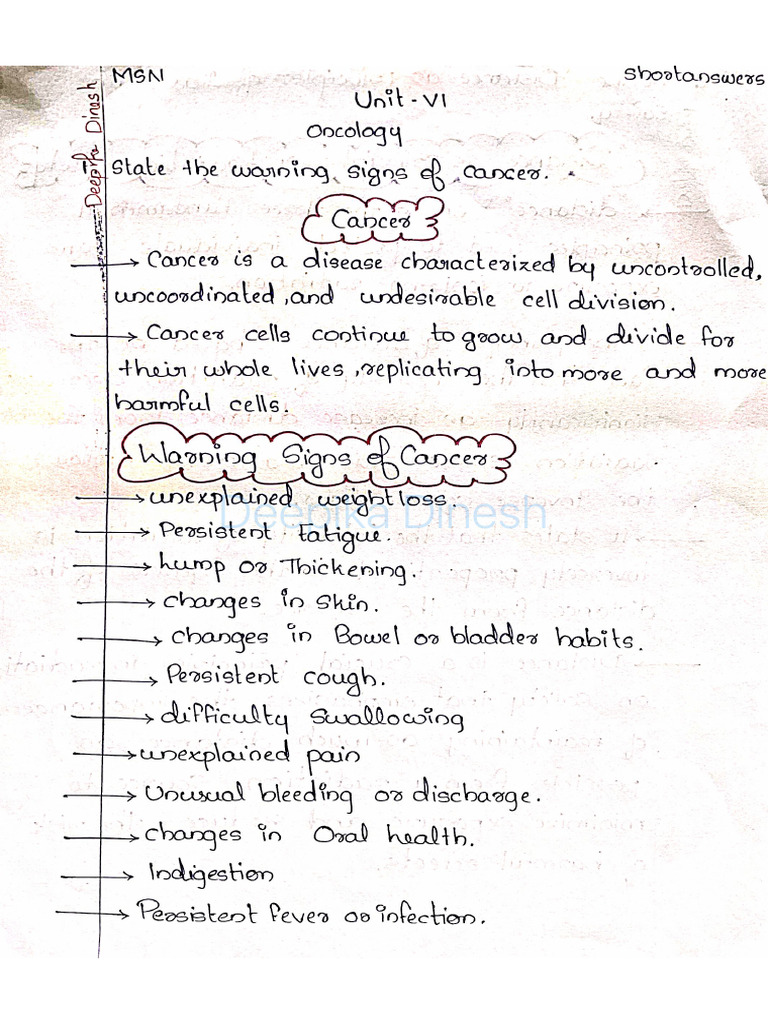 MSN
Shortanswers
Unit - VI
Oncology
Deepika Dinesh
1 State the warning signs of cancer.
Cancer
→ Cancer is a disease characterized by uncontrolled,
uncoordinated, and undesirable cell division.
→ Cancer cells continue to grow, and divide for
their whole lives, replicating into more and more
harmful cells.
Warning Signs of Cancer
→ unexplained weight loss
Deepika Dinesh
→ Persistent Fatigue.
→ hump or Thickening.
→ changes in skin.
→ changes in Bowel or bladder habits.
→ Persistent cough.
→ difficulty swallowing
→ unexplained pain
→ Unusual bleeding or discharge.
→ changes in Oral health.
→ Indigestion
→ Persistent fever or infection.